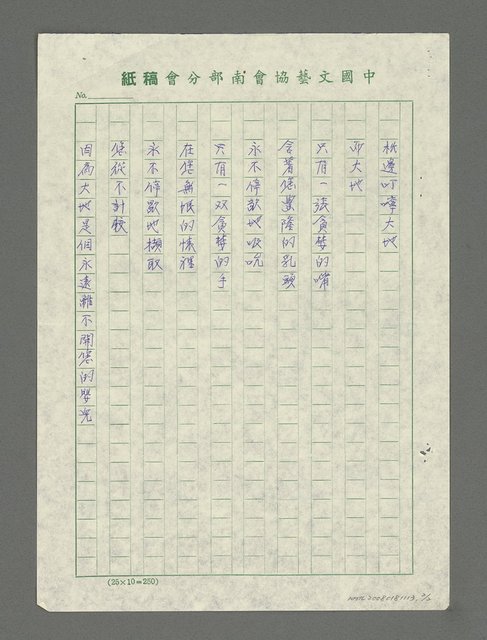 中國文藝協會南部分會稿紙
No.
枕邊叮嚀大地
而大地
只有一張貪婪的嘴
含著您豐隆的乳頭
永不停歇地吸吮
只有一双貪婪的手
在您無垠的懷裡
永不停歇地擷取
您從不計較
因為大地是個永遠離不開您的嬰兒
(25×10=250)